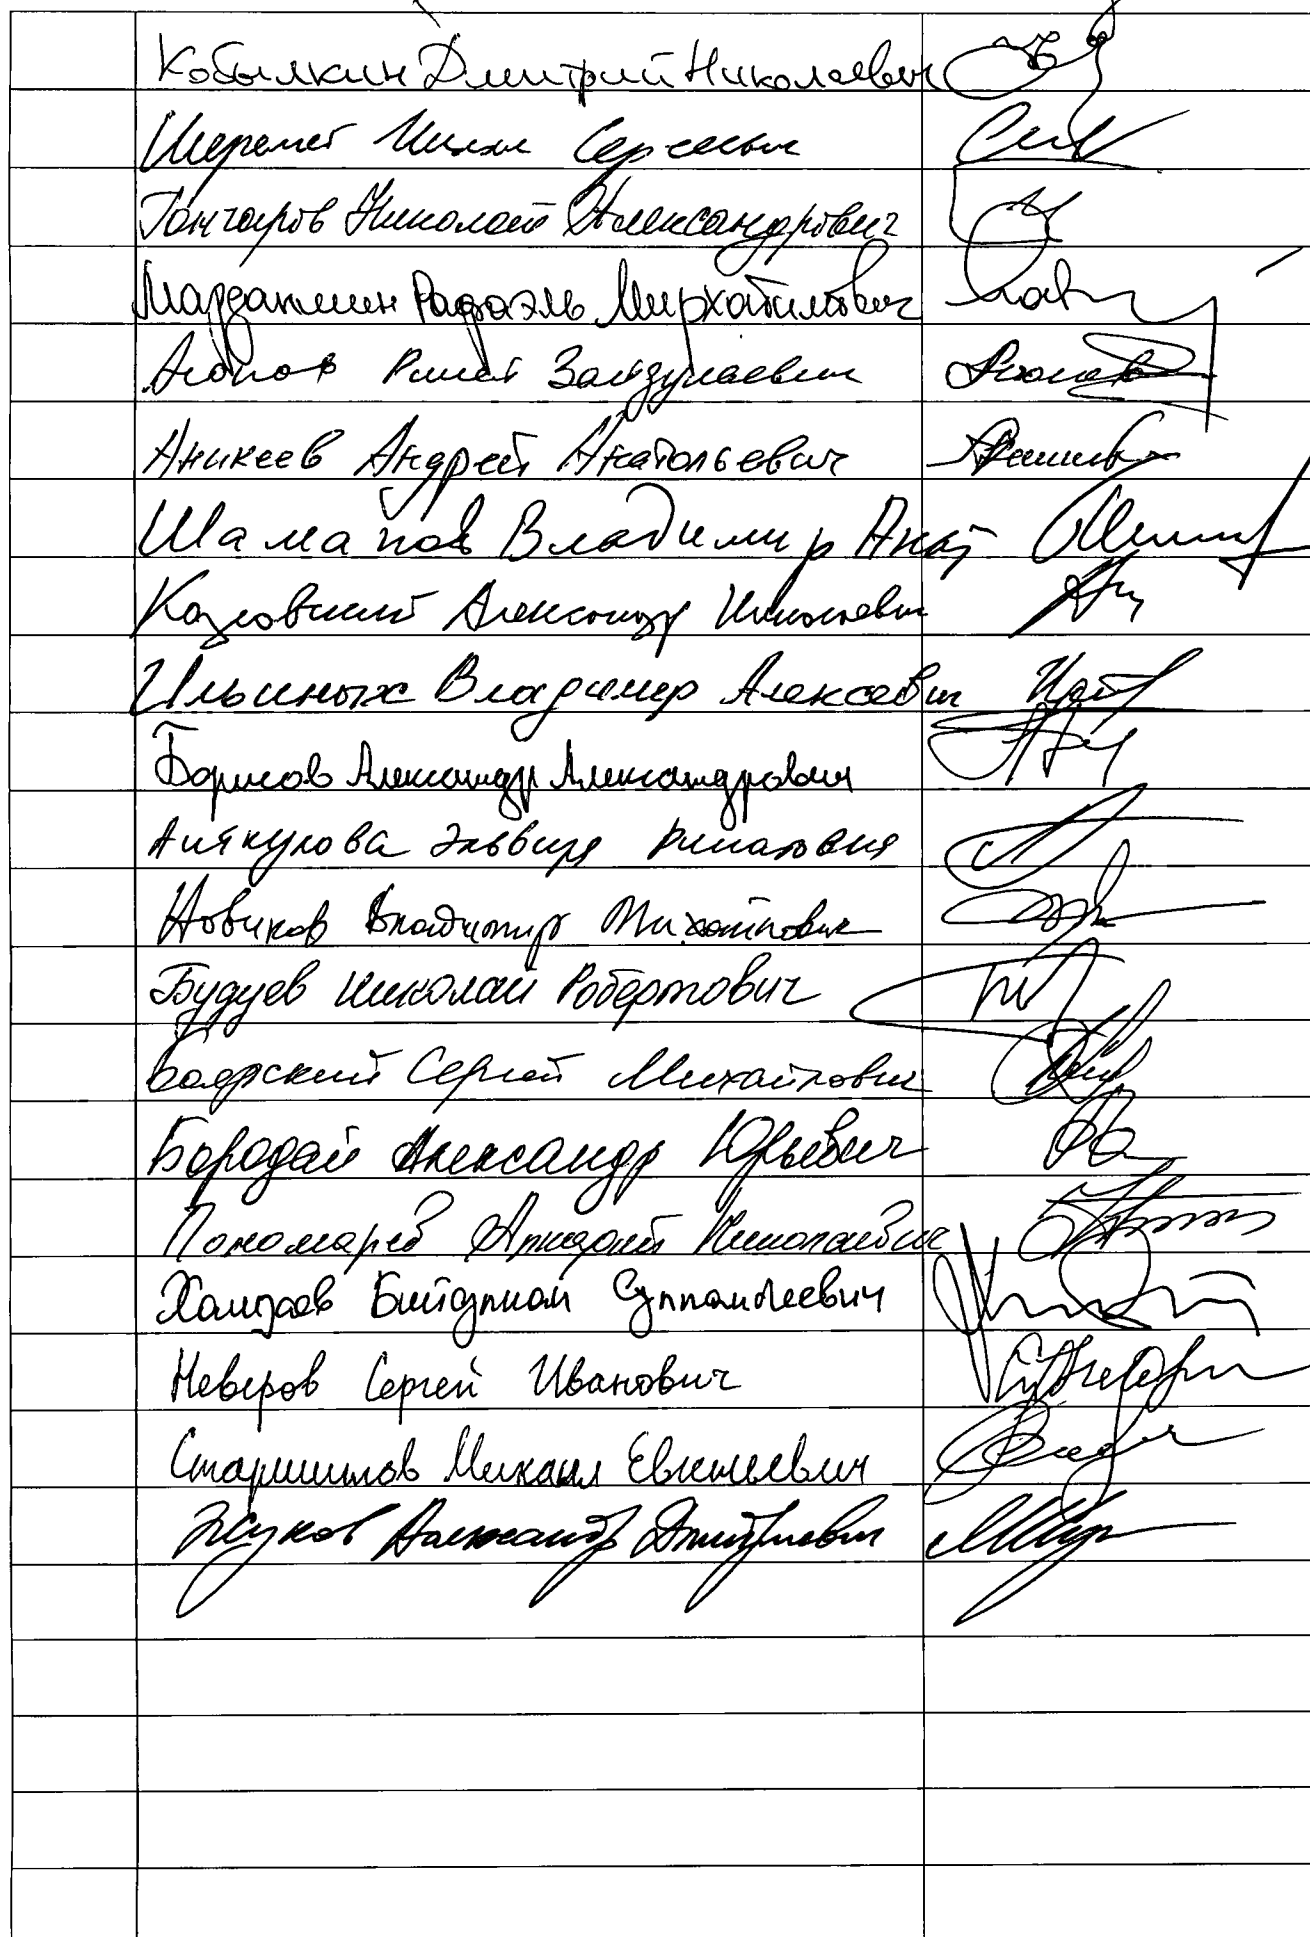 Кобылкин Дмитрий Николаевич
Шеремет Михаил Сергеевич
Гончаров Николай Александрович
Марданшин Рафаэль Мирхатимович
Аюпов Ринат Зайдулаевич
Аникеев Андрей Анатольевич
Шаманов Владимир Анат
Козловский Александр Николаевич
Ильиных Владимир Алексеевич
Борисов Александр Александрович
Аиткулова Эльвира Ринатовна
Новиков Владимир Михайлович
Будуев Николай Робертович
Боярский Сергей Михайлович
Бородай Александр Юрьевич
Пономарёв Аркадий Николаевич
Хамзаев Султанбиевич
Неверов Сергей Иванович
Старшинов Михаил Евгеньевич
Жуков Александр Дмитриевич